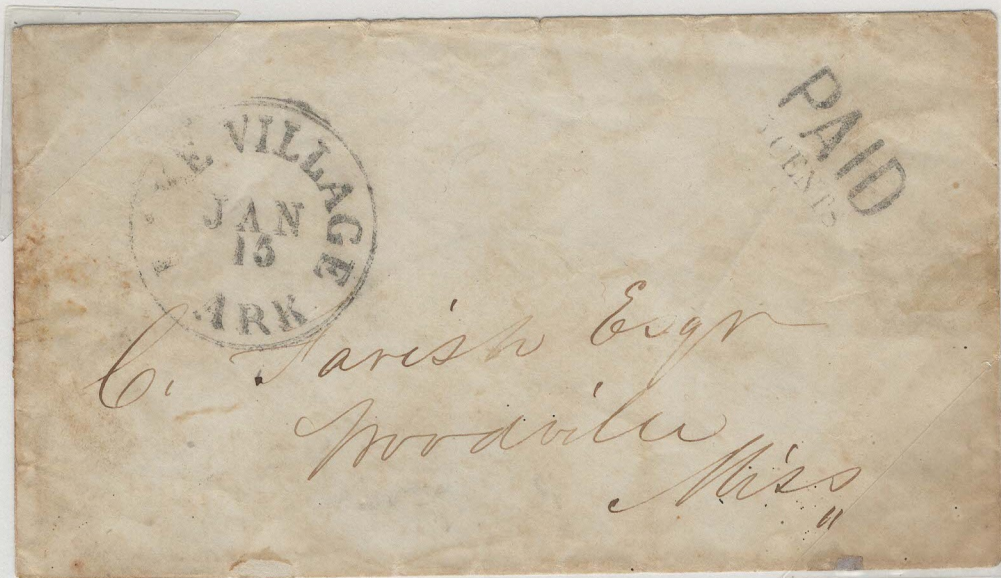 LAKE VILLAGE
JAN
15
ARK
PAID
CENTS
C. Farish Esqr
Woodville
Miss